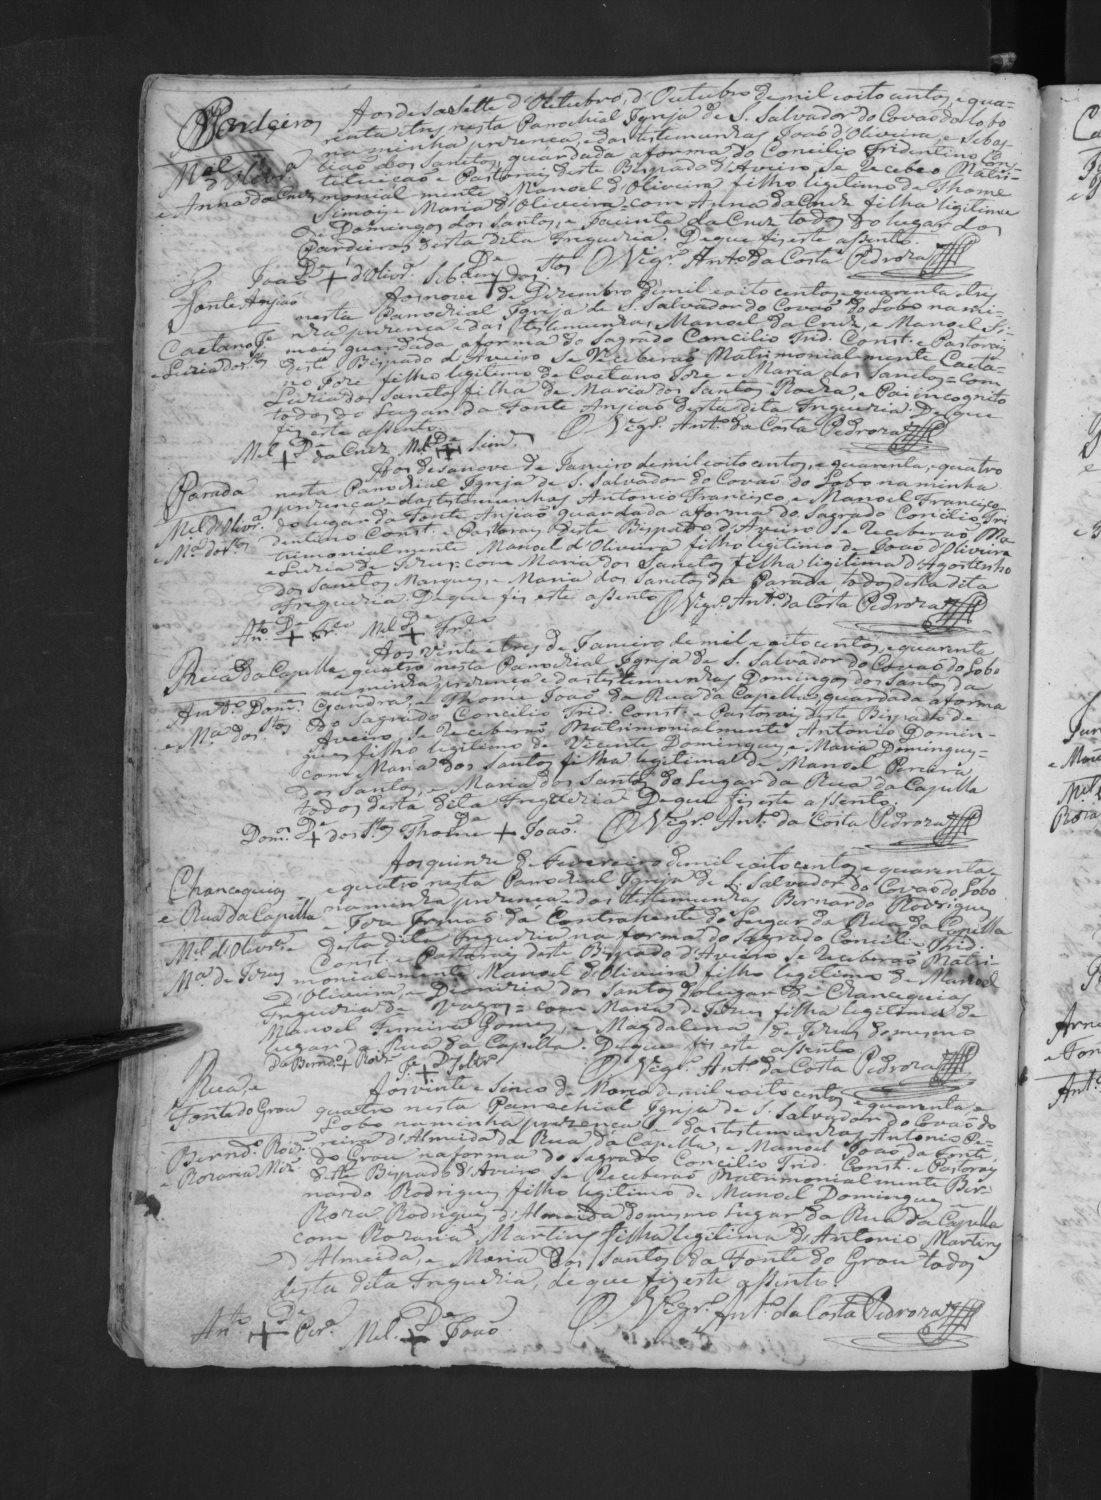 Pardeiros
Mel d'Olivrª
e Anna da Cruz
Aos desasette d'Outubro, d'Outubro de mil e oito centos, e qua=
renta e tres nesta Parochial Igreja de S. Salvador do Covaõ do Lobo
na minha prezença, e das testemunhas Joaõ d'Oliveira, e Sebas
tiaõ dos Sanctos, guardada a forma do Concilio Tridentino Cons
tituiçaõ e Pastoraes deste Bispado d'Aveiro, se Recebeo Matri=
monial mente Manoel d'Oliveira filho legitimo de Thome
Simois e Maria d'Oliveira, com Anna da Cruz filha legitima
de Domingos dos Santos, e Jacinta da Cruz todos do lugar dos
Pardeiros desta dita Freguezia. De que fiz este assento.
Joaõ De + d'Olivrª Seb.am Da + dos Stos O Vigrº Antº da Costa Pedroza
Fonte Anjaõ
Caetano Je
e Luzia dos Stos
Aos nove de Dezembro de mil e oito centos e quarenta e tres
nesta Parochial Igreja de S. Salvador do Covaõ do Lobo na mi-
nha prezença e das testemunhas, Manoel da Cruz, e Manoel Si-
mois guardada a forma do Sagrado Concilio Trid. Const. e Pastoraes
deste Bispado d'Aveiro se Receberaõ Matrimonial mente Caeta-
no Joze filho legitimo de Caetano Joze e Maria dos Sanctos = com
Luzia dos Sanctos filha de Maria dos Santos Rocha, e Pai incognito
todos do Lugar da Fonte Anjaõ desta dita Freguezia De que
fiz este assento. O Vigrº Antº da Costa Pedroza
Mel De + da Cruz Mel De + Simois
Parada
Mel d'Olivrª
e Mª dos Stos
Aos desanove de Janeiro de mil e oito centos, e quarenta, e quatro
nesta Parochial Igreja de S. Salvador do Covaõ do Lobo na minha
prezença e das testemunhas Antonio Francisco, e Manoel Francisco
do lugar da Fonte Anjaõ guardada a forma do Sagrado Concilio Tri
dentino Const. e Pastoraes deste Bispado d'Aveiro Se Receberaõ Ma
trimonialmente Manoel d'Oliveira filho legitimo de Joaõ d'Oliveira
e Luzia de Jezus; com Maria dos Sanctos filha legitima d'Agostinho
dos Sanctos Marques, e Maria dos Sanctos da Parada todos desta dita
Freguezia. De que fiz este assento O Vigrº Antº da Costa Pedroza
Antº De + Frco Mel De + Frco
Rua da Capella
Antº Doms
e Mª dos Stos
Aos vinte e tres de Janeiro de mil e oito centos, e quarenta
e quatro nesta Parochial Igreja de S. Salvador do Covaõ do Lobo
na minha prezença e das testemunhas Domingos dos Santos da
Gandra, e Thome Joaõ da Rua da Capella guardada a forma
do Sagrado Concilio Trid. Const. e Pastoraes deste Bispado de
Aveiro, se Receberaõ Matrimonialmente Antonio Domin=
gues filho legitimo de Vicente Domingues, e Maria Domingues=
com Maria dos Santos filha legitima de Manoel Pereira
dos Santos, e Maria dos Santos do Lugar da Rua da Capella
todos desta dita Freguezia De que fiz este assento.
Domos De + dos Stos Thome Da + Joaõ O Vigrº Antº da Costa Pedroza
Chancequias
e Rua da Capella
Mel d'Olivrª e
Mª de Jezus
Aos quinze de Fevereiro de mil e oito centos, e quarenta
e quatro nesta Parochial Igreja de S. Salvador do Covaõ do Lobo
na minha prezença e das testemunhas Bernardo Rodrigues
e Joze Irmaõ da Contrahente do Lugar da Rua da Capella
desta dita Freguezia na forma do Sagrado Concilio Trid.
Const. e Pastoraes deste Bispado d'Aveiro se Receberaõ Matri-
monialmente Manoel d'Oliveira filho legitimo de Manoel
d'Oliveira, e Dionizia dos Santos do Lugar de Chancequias
Freguezia de Vagos = com Maria de Jezus filha legitima de
Manoel Ferreira Gomes, e Magdalena de Jezus do mesmo
lugar da Rua da Capella. De que fiz este assento
da Bernº + Roiz Je De + Soltrº O Vigrº Antº da Costa Pedroza
Rua e
Fonte do Grou
Bernd.º Roiz
e Rozaria Miz
Aos vinte e sinco de Março de mil e oito centos e quarenta e
quatro nesta Parochial Igreja de S. Salvador do Covaõ do
Lobo na minha prezença e das testemunhas, Antonio Pe-
reira d'Almeida da Rua da Capella, e Manoel Joaõ da Fonte
do Grou na forma do Sagrado Concilio Trid. Const. e Pastoraes
deste Bispado d'Aveiro se Receberaõ Matrimonialmente Ber-
nardo Rodrigues filho legitimo de Manoel Domingues
Roza Rodrigues d'Almeida do mesmo Lugar da Rua da Capella
com Rozaria Martins filha legitima d'Antonio Martins
d'Almeida, e Maria dos Santos da Fonte do Grou todos
desta dita Freguezia, de que fiz este assento.
O Vigrº Antº da Costa Pedroza
Antº De + Perª Mel De + Joaõ